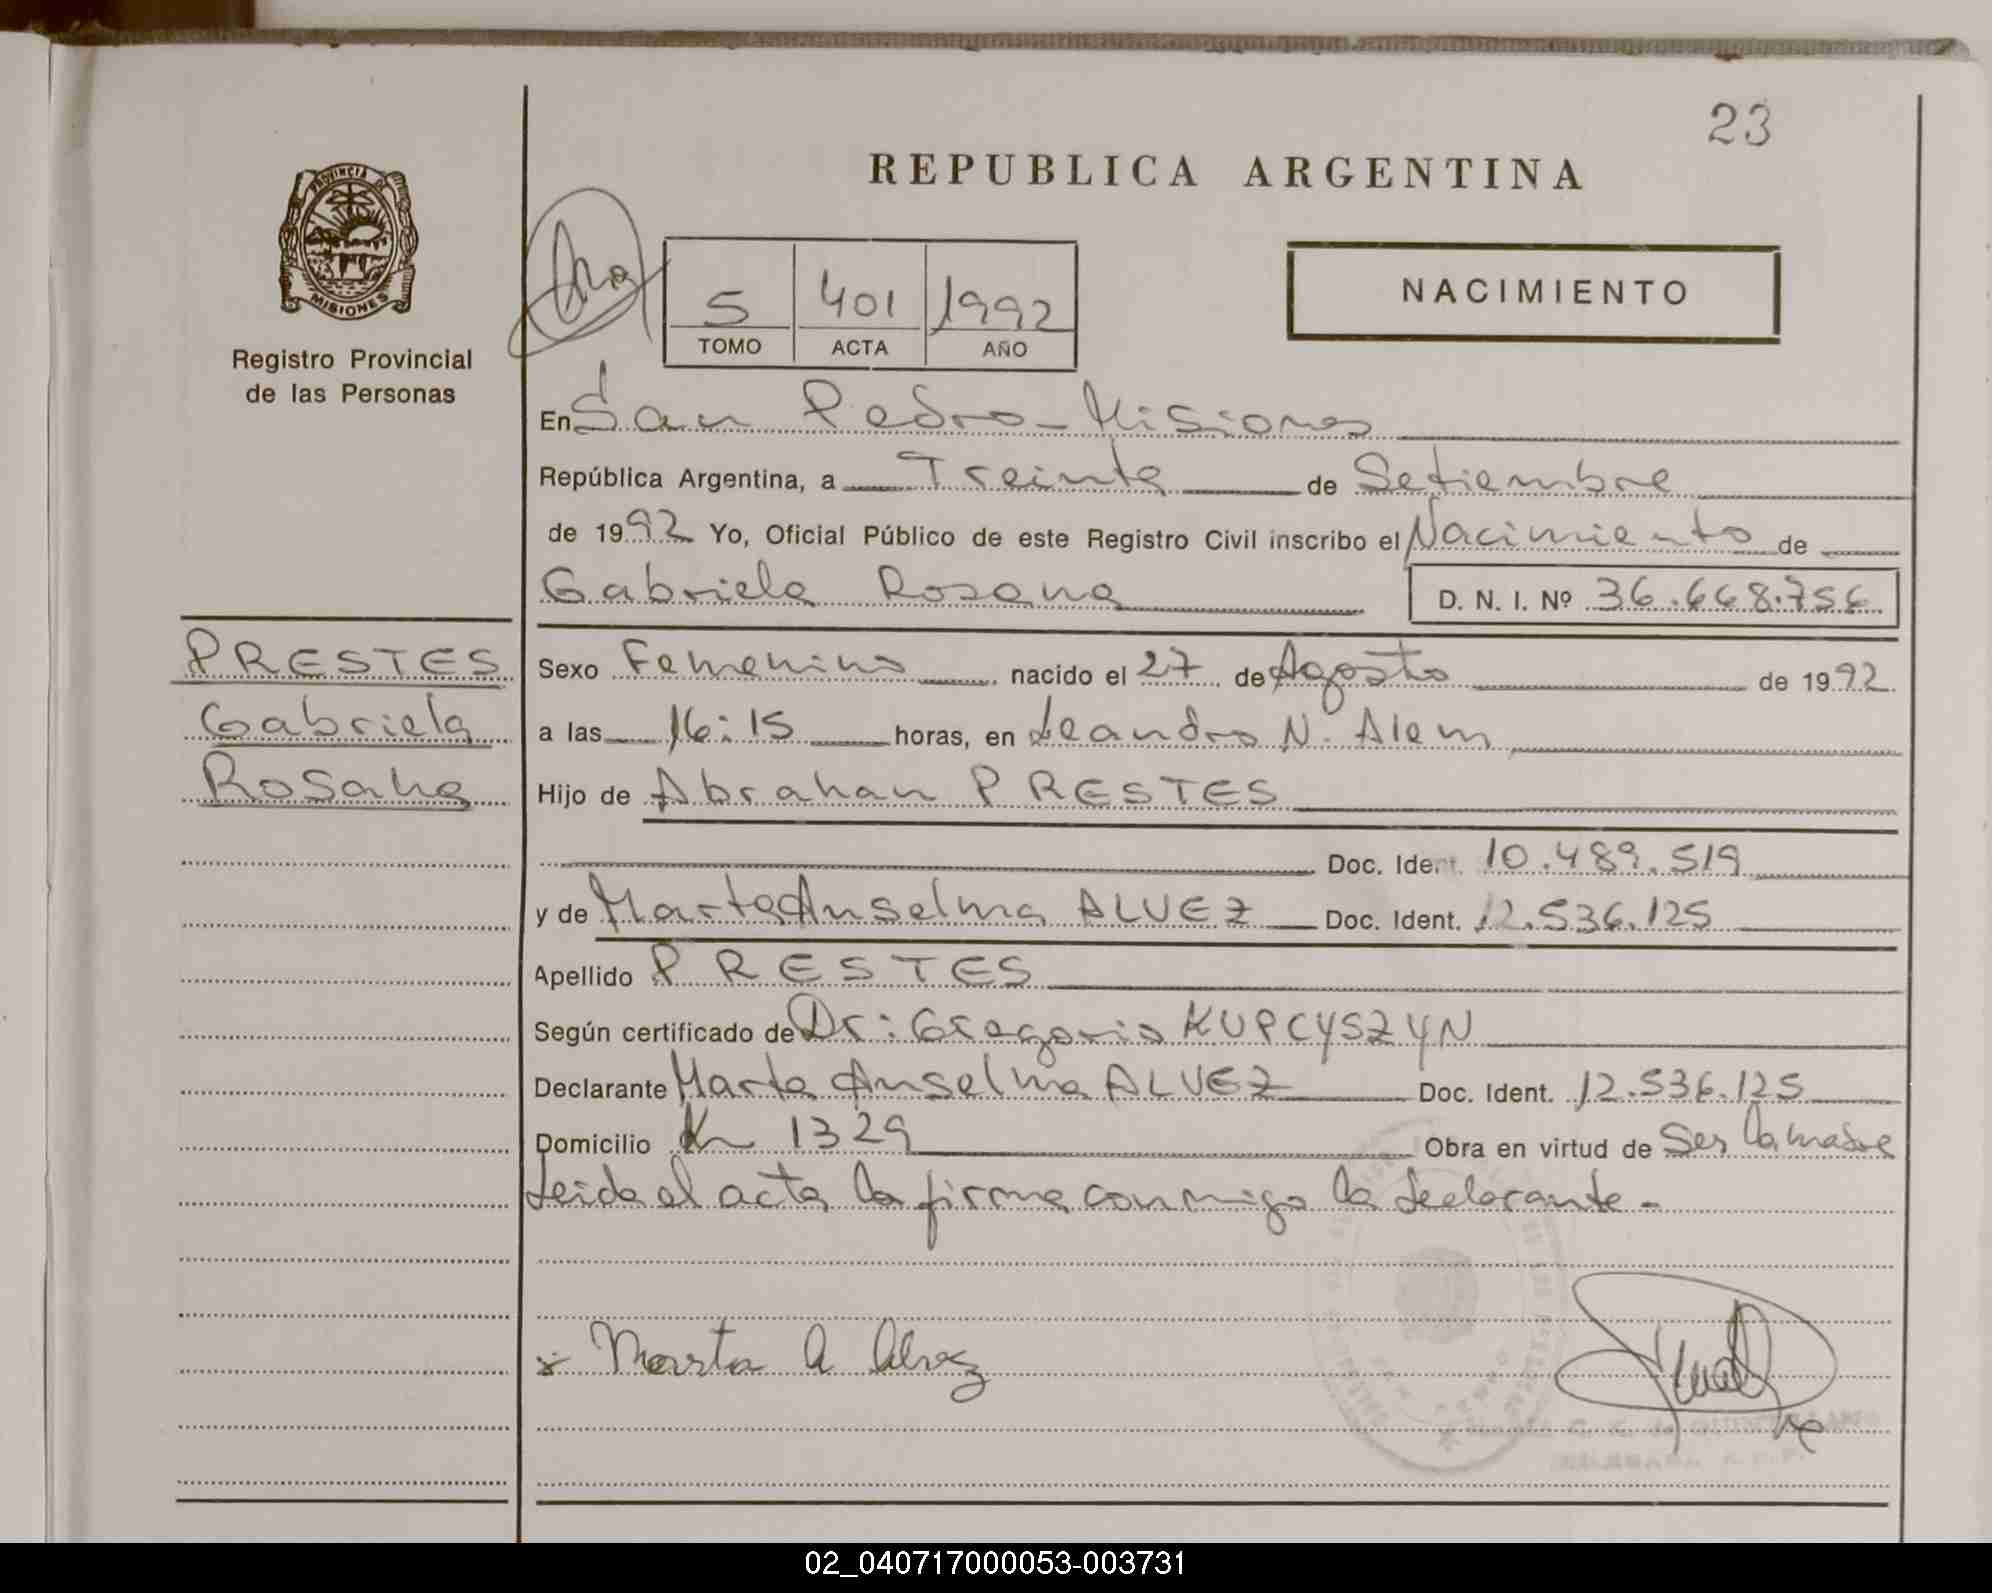 23
REPUBLICA ARGENTINA
PROVINCIA DE
MISIONES
Registro Provincial
de las Personas
NACIMIENTO
5 401 1992
TOMO ACTA AÑO
En San Pedro - Misiones
República Argentina, a Treinta de Setiembre
de 1992 Yo, Oficial Público de este Registro Civil inscribo el Nacimiento de
Gabriela Rosana D. N. I. Nº 36.668.756
PRESTES
Gabriela
Rosana
Sexo Femenino nacido el 27 de Agosto de 1992
a las 16:15 horas, en Leandro N. Alem
Hijo de Abrahan PRESTES
Doc. Ident. 10.489.519
y de Marta Anselma ALVEZ Doc. Ident. 12.536.125
Apellido PRESTES
Según certificado de Dr: Gregorio KUPCYSZYN
Declarante Marta Anselma ALVEZ Doc. Ident. 12.536.125
Domicilio Km 1329 Obra en virtud de Ser la madre
Leida el acta la firma conmigo la declarante-
x Marta A Alvez
02_040717000053-003731